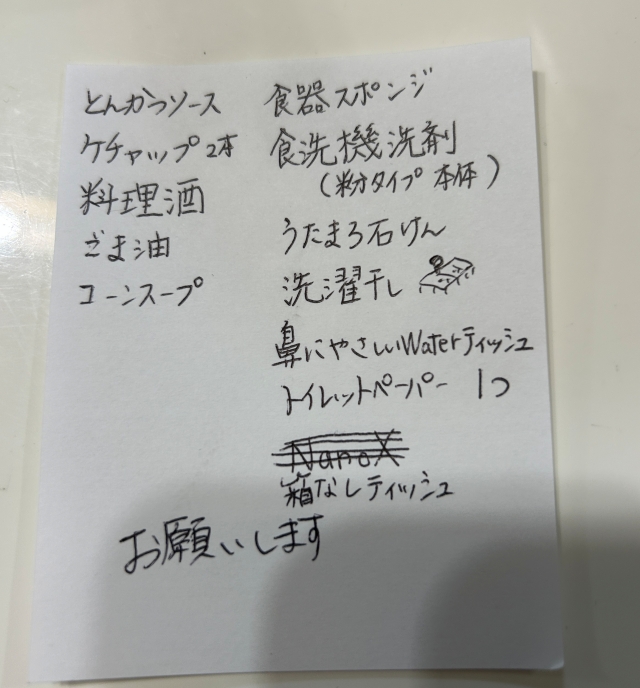 とんかつソース
ケチャップ2本
料理酒
ごま油
コーンスープ
食器スポンジ
食洗機洗剤
(粉タイプ 本体)
うたまろ石けん
洗濯干し
鼻にやさしいWaterティッシュ
トイレットペーパー 1つ
NanoX
箱なしティッシュ
お願いします